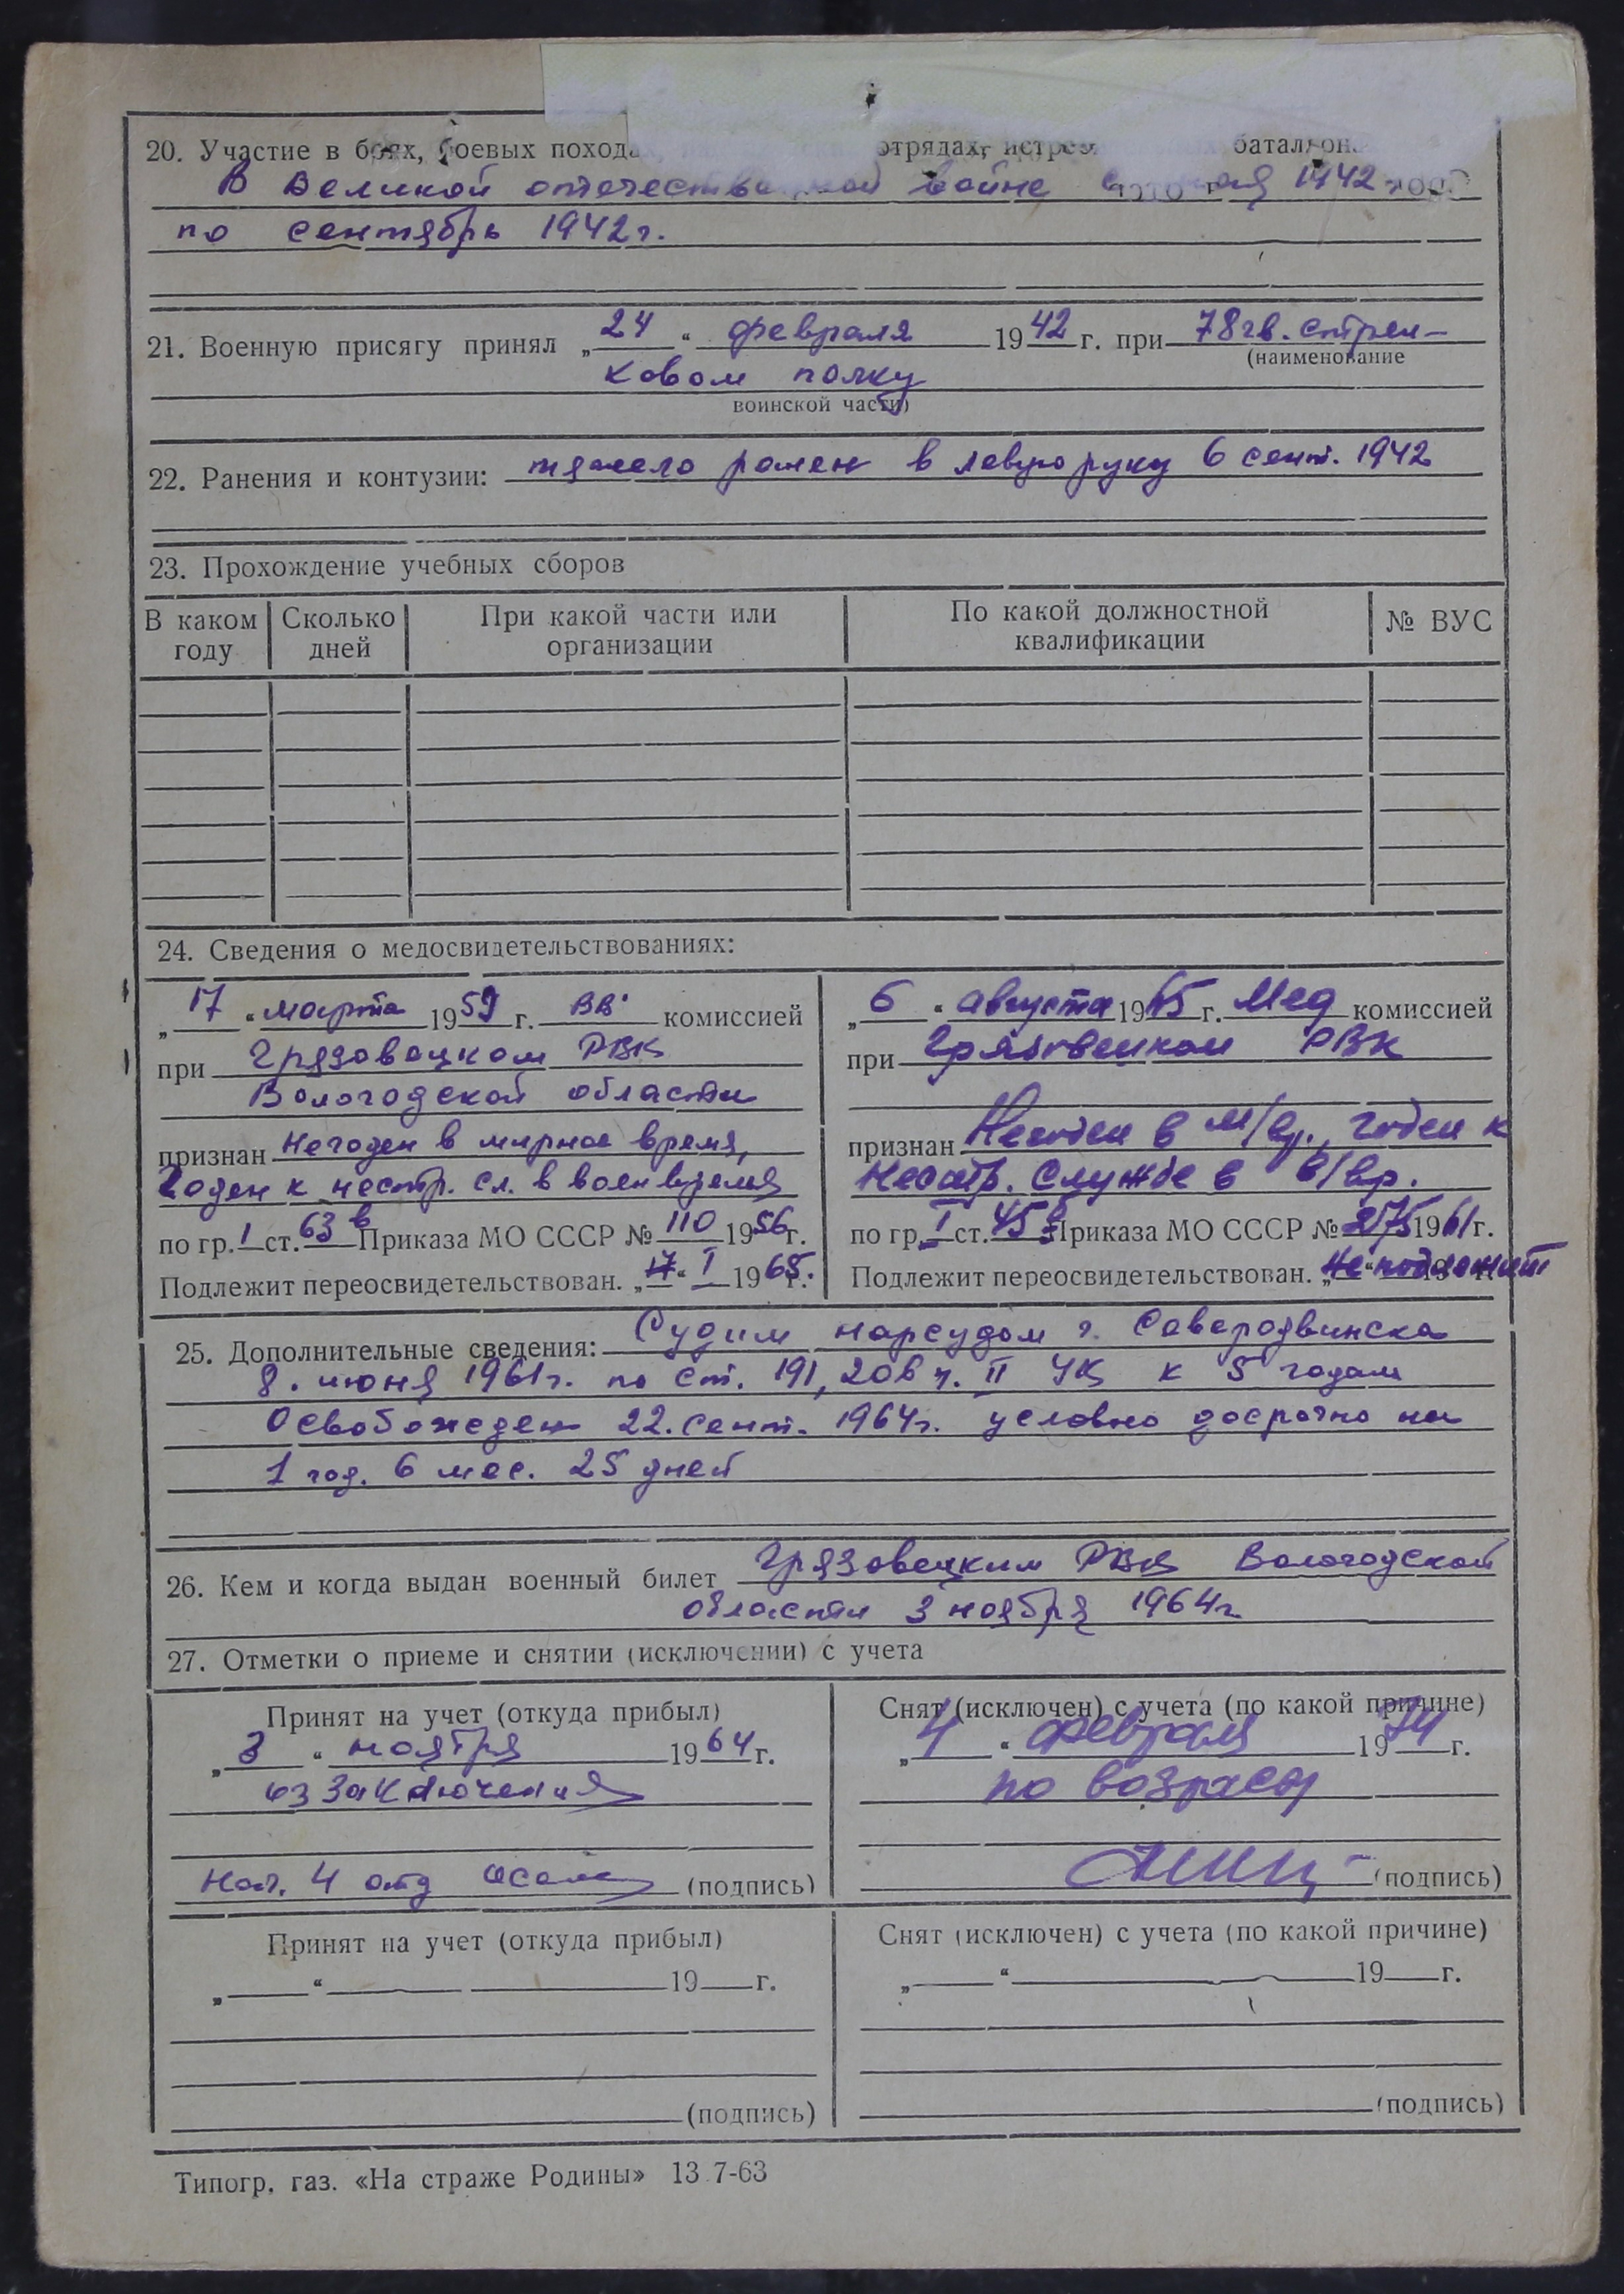 20. Участие в боях, боевых похода отрядах, истре батальон
В Великой отечественной войне с мая 1942
по сентябрь 1942г.
21. Военную присягу принял „24“ февраля 1942 г. при 78 гв. стрел-
(наименование
ковом полку
воинской части)
22. Ранения и контузии: тяжело ранен в левую руку 6 сент. 1942
23. Прохождение учебных сборов
В каком году Сколько дней При какой части или организации По какой должностной квалификации № ВУС
24. Сведения о медосвидетельствованиях:
„17“ марта 1959 г. ВВ комиссией
при Грязовецком РВК
Вологодской области
признан Негоден в мирное время,
Годен к нестр. сл. в воен время
по гр. I ст. 63 в Приказа МО СССР № 110 1956г.
Подлежит переосвидетельствован. „17“ I 1965г.
„6“ августа 1965 г. Мед комиссией
при Грязовецком РВК
признан Негоден в м/вр., годен к
Нестр. службе в в/вр.
по гр. I ст. 45 Приказа МО СССР № 275 1961г.
Подлежит переосвидетельствован. Не подлежит
25. Дополнительные сведения: Судим нарсудом г. Северодвинска
8. июня 1961г. по ст. 191, 206 ч. II УК к 5 годам
Освобожден 22. сент. 1964г. условно досрочно на
1 год. 6 мес. 25 дней
26. Кем и когда выдан военный билет Грязовецким РВК Вологодской
области 3 ноября 1964г
27. Отметки о приеме и снятии (исключении) с учета
Принят на учет (откуда прибыл)
„3“ ноября 1964 г.
из Заключения
Нач. 4 отд (подпись)
Снят (исключен) с учета (по какой причине)
„4“ февраля 1974 г.
по возрасту
(подпись)
Принят на учет (откуда прибыл)
„ “ 19 г.
(подпись)
Снят (исключен) с учета (по какой причине)
„ “ 19 г.
(подпись)
Типогр. газ. «На страже Родины» 13 7-63